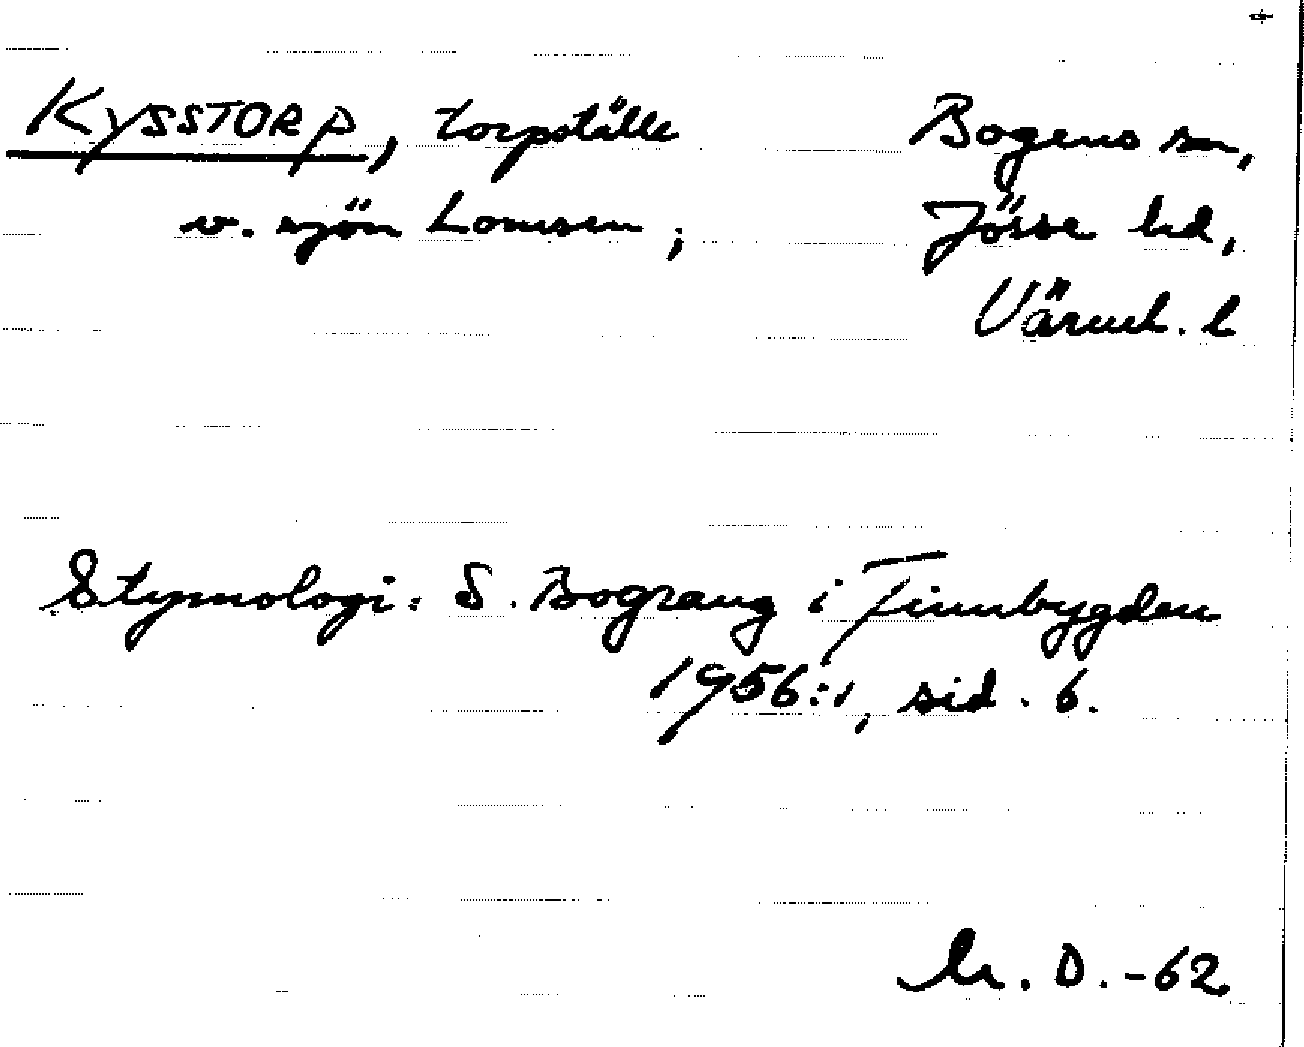 KYSSTORP, torpställe
v. sjön Lomsen;
Bogens sn,
Jösse hd,
Värml. l
Etymologi: S. Bograng i Finnbygden
1956:1, sid. 6.
D. -62